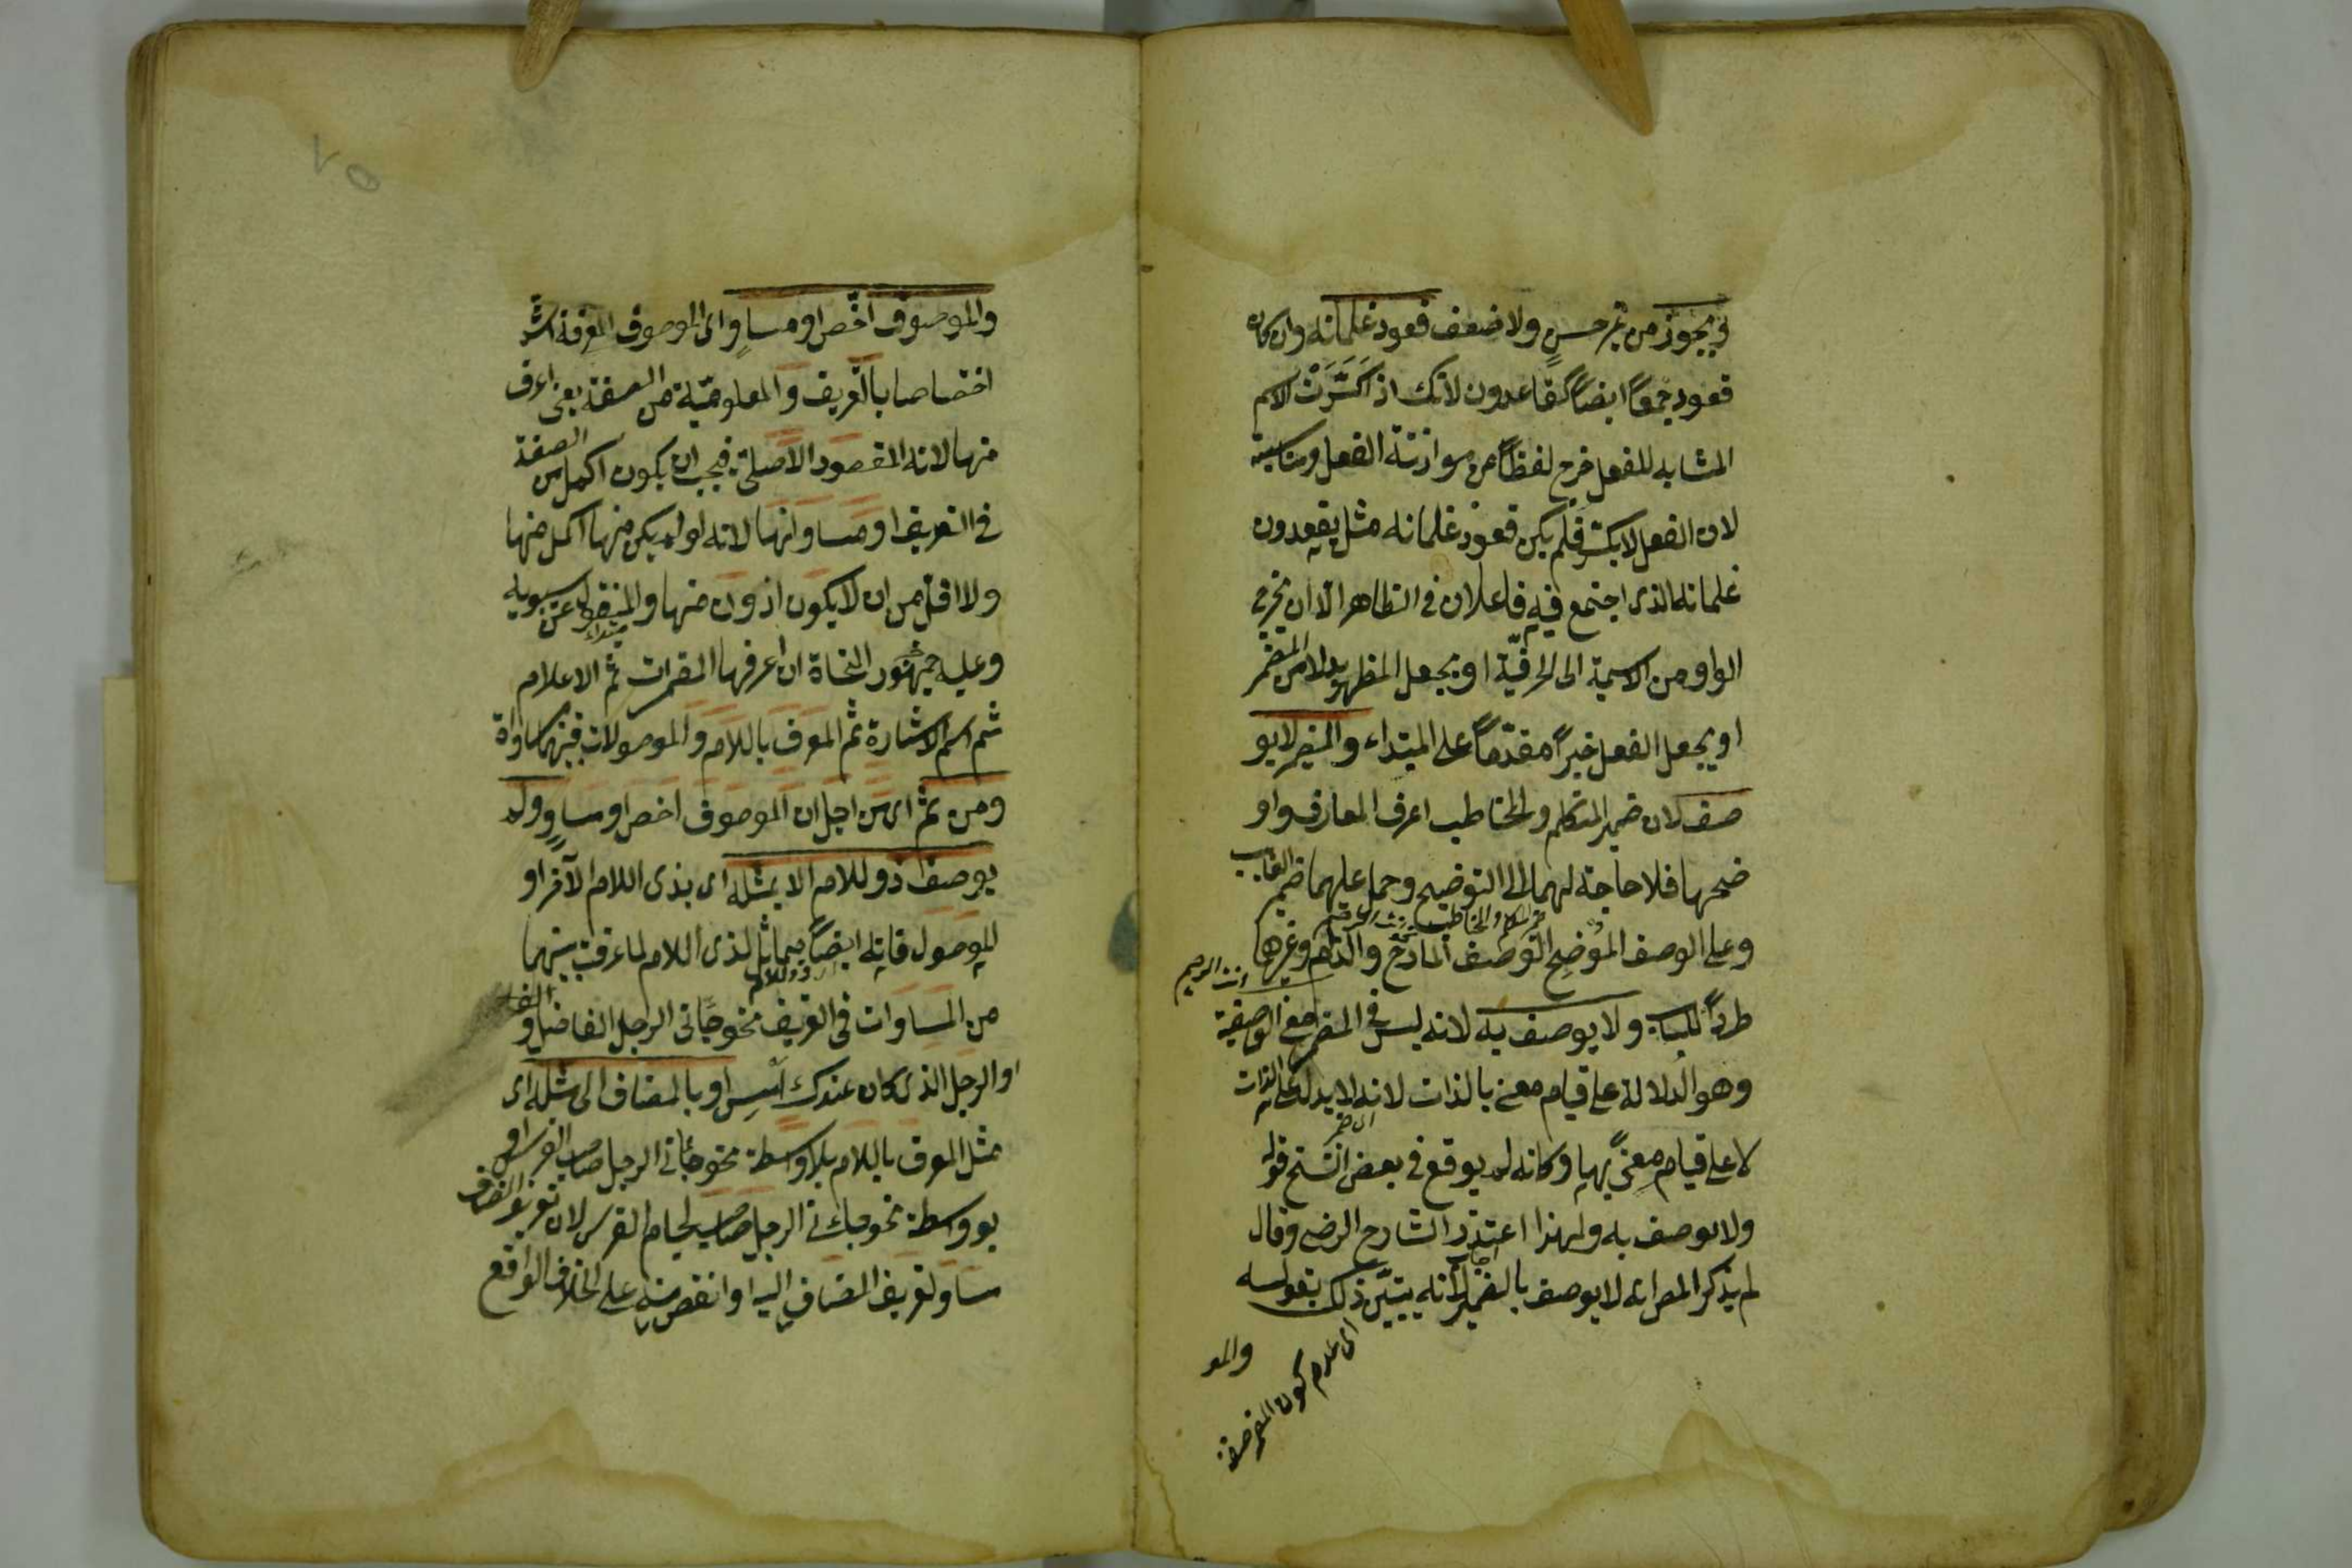 في يجوز من غير حسن ولا ضعف قعود غلمانه وان كان
قعود جمعاً ايضاً كقاعدون لانك اذا كسّرت الاسم
المشابه للفعل خرج لفظاً من موازنة الفعل ومناسبته
لان الفعل لا يكسّر فلم يكن قعود غلمانه مثل يقعدون
غلمانه الذى اجتمع فيه فاعلان فى الظاهر الّا ان يخرج
الواو من الاسمية الى الحرفيّة او يجعل المظهر بدلا من المضمر
او يجعل الفعل خبراً مقدّماً على المبتداء والمضمر لا يو
صف لان ضمير المتكلم والمخاطب اعرف المعارف واو
ضحها فلا حاجة لهما الى التوضيح وحمل عليهما ضمير الغايب
وعلى الوصف الموضح الوصف المادح والذام وغيرهما
طرداً للباب ولا يوصف به لانه ليس فى المضمر معنى الوصفية
وهو الدلالة على قيام معنى بالذات لانه لا يدل الا على الذات
لا على قيام معنىً بها وكانه لم يوقع فى بعض النسخ قوله
ولا يوصف به ولهذا اعتذر الشارح الرضى وقال
لم يذكر المص انه لا يوصف بالضمير لانه يتبيّن ذلك بقوله
والمو
اى عدم كون المضمر صفة
والموصوف اخصّ او مساوٍ اى الموصوف المعرفة اشدّ
اختصاصا بالتعريف والمعلوميّة من الصفة يعنى اعرف
منها لانه المقصود الاصلىّ فيجب ان يكون اكمل من الصفة
فى التعريف او مساويا لها لانه لو لم يكن منها اكمل منها
ولا اقل من ان لا يكون ادون منها والمنقول عن سيبويه
وعليه جمهور النحاة ان اعرفها المضمرات ثم الاعلام
ثم اسم الاشارة ثم المعرف باللام والموصولات فبينهما مساواة
ومن ثم اى من اجل ان الموصوف اخص او مساوٍ لم
يوصف ذو اللام الا بمثله اى بذى اللام الآخر او
الموصول فانه ايضاً مماثل لذى اللام لما عرفت بينهما
من المساوات فى التعريف نحو جاءنى الرجل الفاضل
او الرجل الذى كان عندك امس او بالمضاف الى مثله اى
مثل المعرف باللام بلا واسطة نحو جاءنى الرجل صاحب الفرس او
بواسطة نحو جاءنى الرجل صاحب لجام الفرس لان تعريف المضاف
مساو لتعريف المضاف اليه او انقص منه على الخلاف الواقع